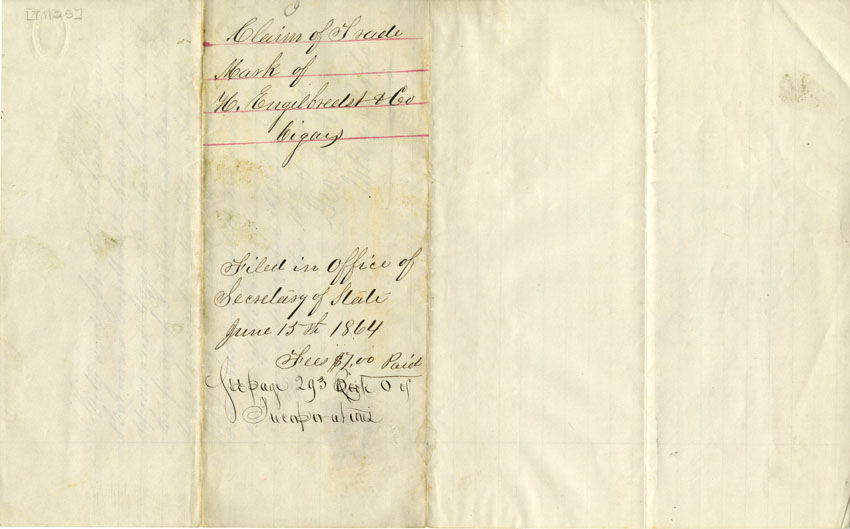 [TM25]
Claim of Trade
Mark of
H. Engelbrecht & Co
Cigars
Filed in Office of
Secretary of State
June 15th 1864
Fees $7.00 Paid
See page 293 Book O of
Incorporations